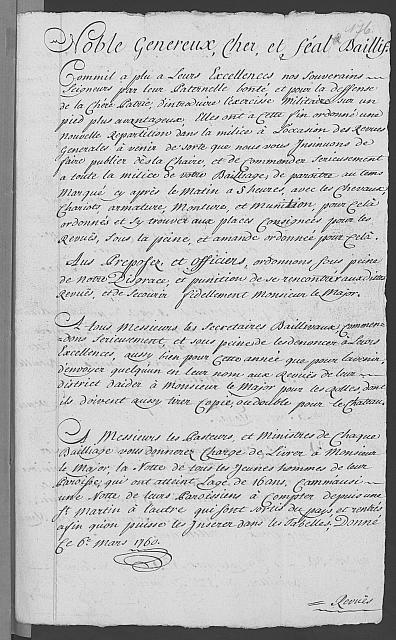 176.
Noble Genereux, Cher, et, féal Baillif.
Commil a plu a Leurs Excellences nos Souverains
Seigneurs par leur Paternelle bonté, et pour la deffense
de la Chere Patrie, d'introduire l'exercise Militaire sur un
pied plus avantageux, Illes ont a Cette fin ordonné une
nouvelle Repartition dans la milice à l'ocasion des Revües
Generales à venir de sorte que nous vous Insinuons de
faire publier dès la Chaire, et de Commander serieusement
a toute la milice de votre Bailliage, de paraitre au tems
Marqué cy après le Matin a 5 heures, avec les Chevaux,
Chariots, armature, Monture, et Munition, pour Celà
ordonnés et s'y trouver aux places Consignées pour les
Revües, Sous la peine, et amande ordonné pour Celà.
Aux Prepofez et Officiers, ordonnons sous peine
de notre Disgrace, et punition de se rencontrer auxdittes
Revües, et de Secourir fidellement Monsieur le Major.
A tous Messieurs les Secretaires Baillivaux, Commen-
dons Serieusement, et sous peine de les denoncer à Leurs
Excellences, aussy bien pour Cette année que pour l'avenir,
d'envoyer quelqu'un en leur nom aux Revües de leur
district d'aider à Monsieur le Major pour les Rolles, dont
ils doivent aussy tirer Copie, ou double pour le Chateau.
A Messieurs les Pasteurs, et Ministres de Chaque
Bailliage vous donnerez Charge de Livrer à Monsieur
le Major, la Notte de tous les Jeunes hommes de leur
Paroisse, qui ont atteint L'age de 16 ans, Cammaussi
une Notte de leurs Paroissiens à Compter depuis une
St Martin à l'autre qui sont sortis du pays, et rentrés
afin qu'on puisse les Inserer dans les Tabelles, Donné
Ce 6e Mars 1760.
= Revües